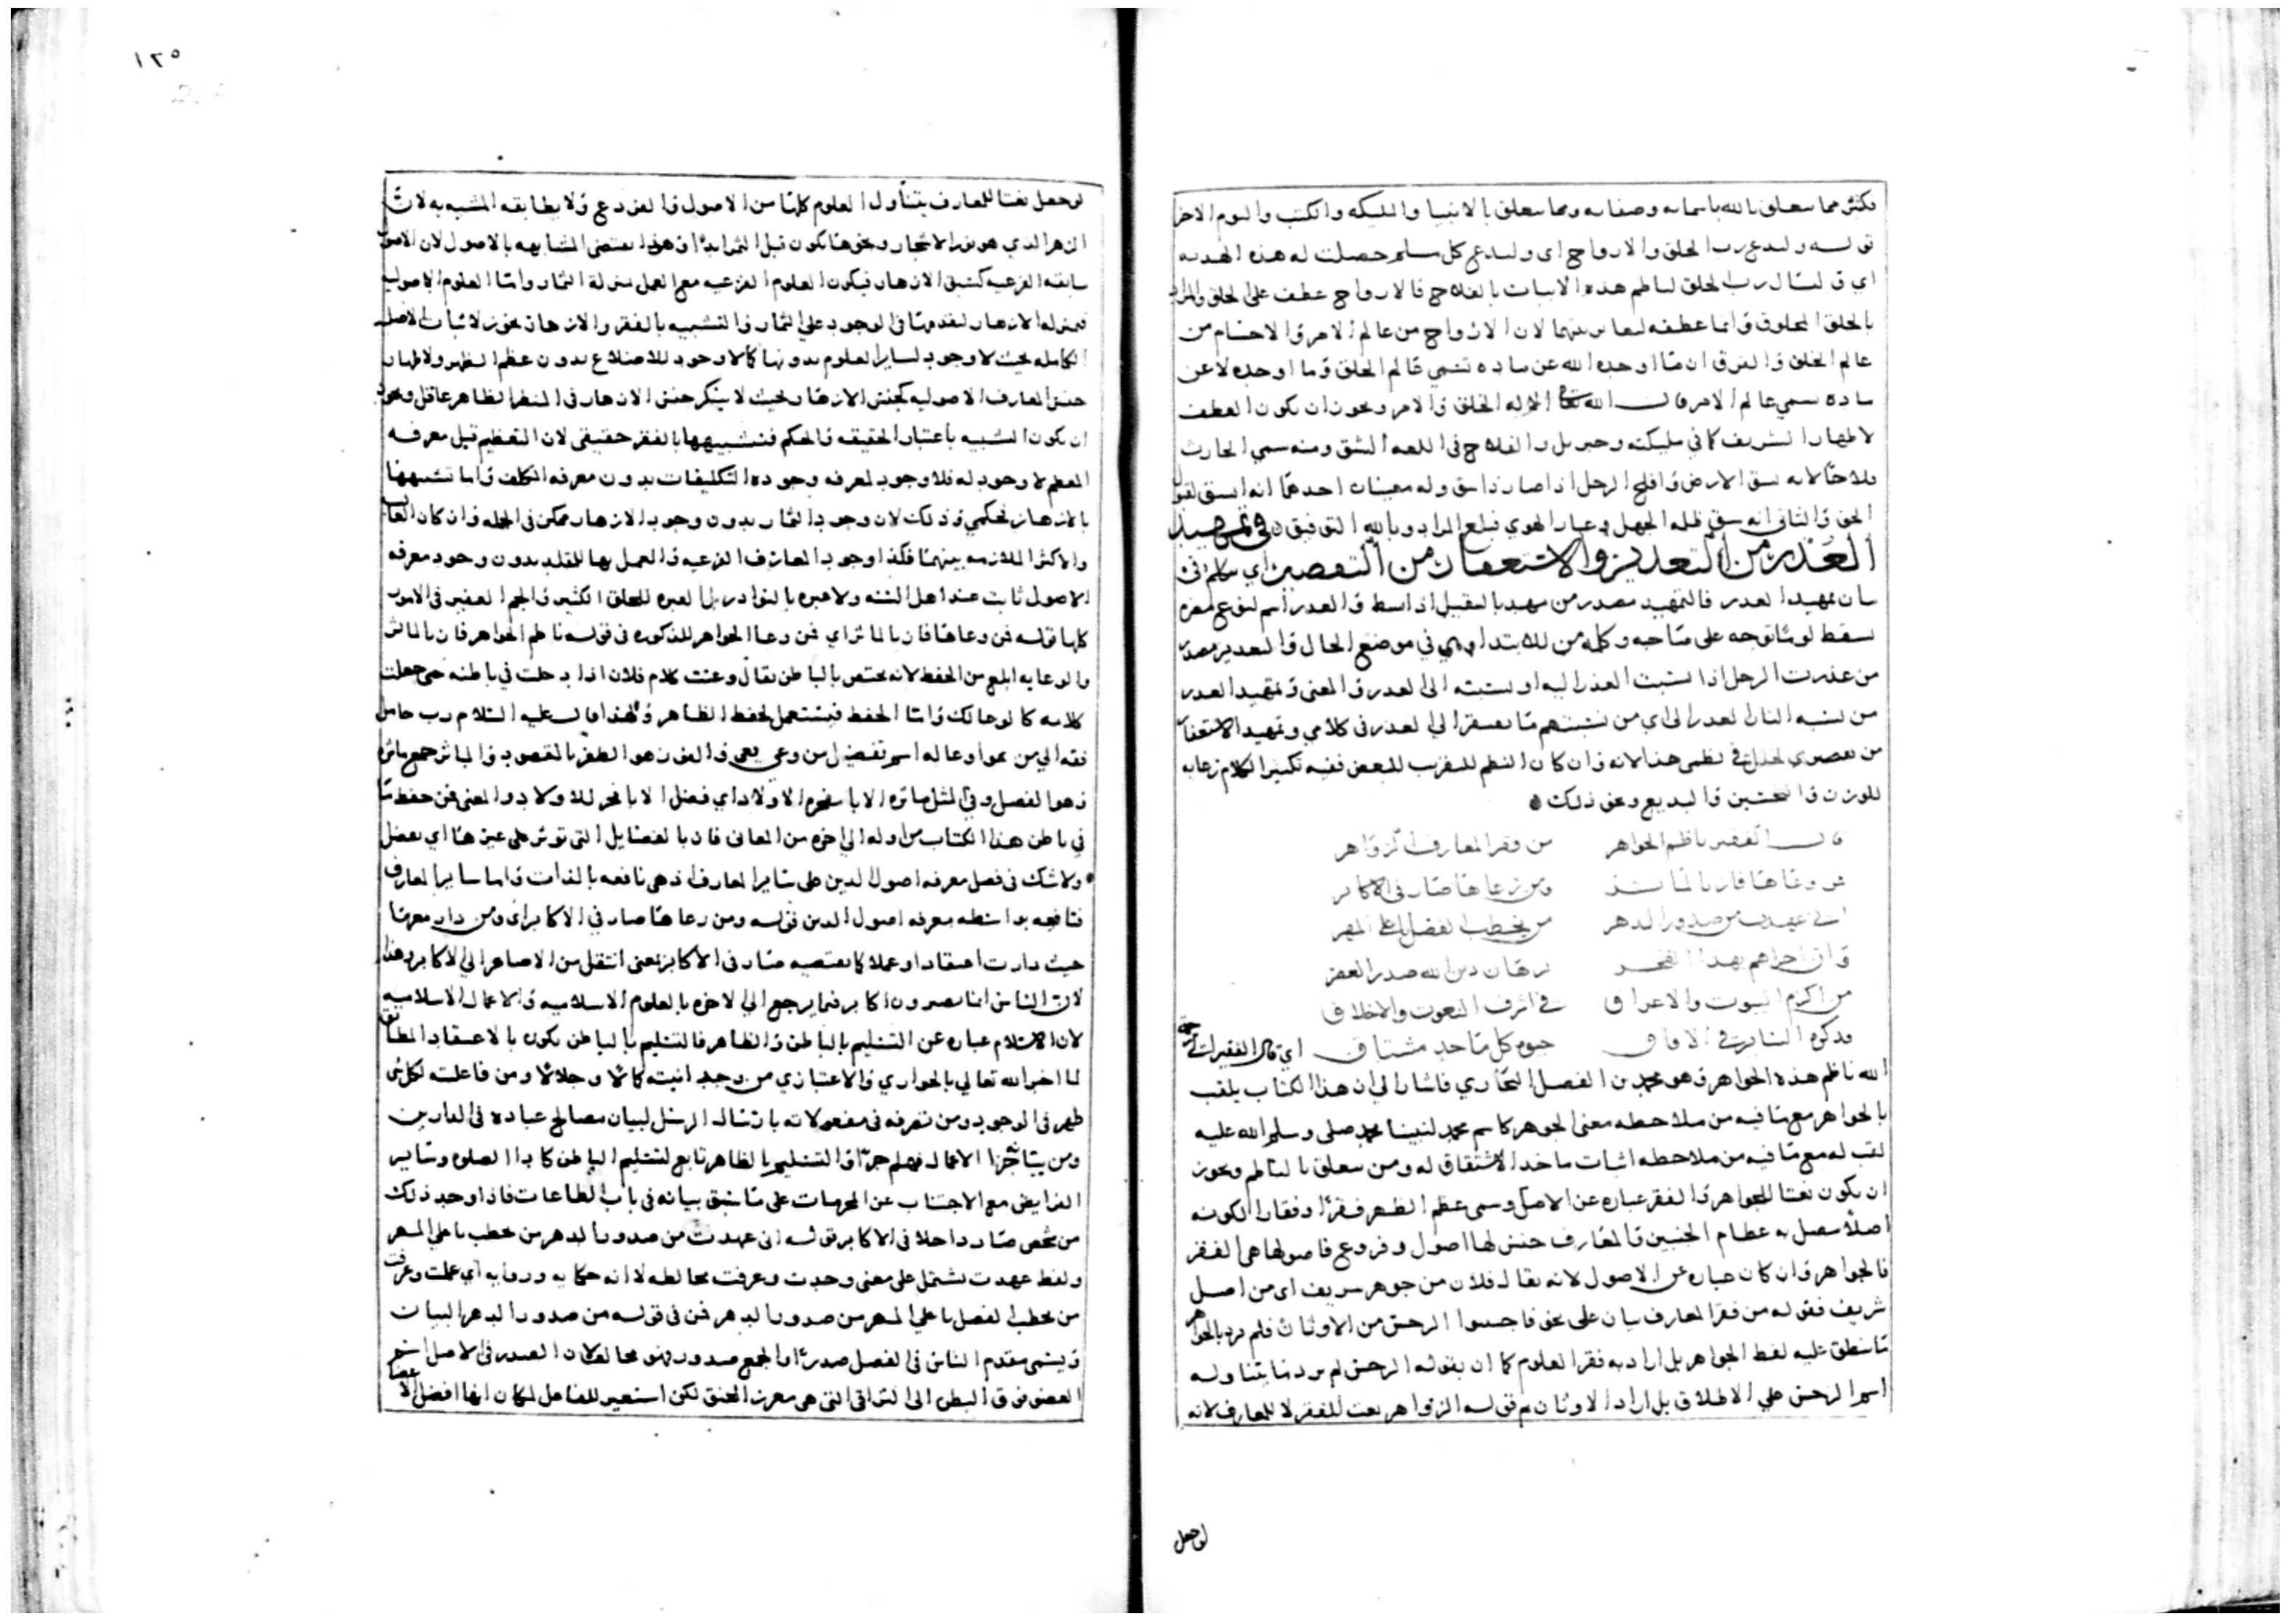 فكثير مما يتعلق بالله باسمائه وصفاته ومما يتعلق بالانبيا والمليكه والكتب واليوم الاخر
قوله وليدع رب الخلق والارواح اى وليدع كل مسلم حصلت له هذه الهديه
اي رب الخلق لناظم هذه الابيات بالفلاح فالارواح عطف على الخلق والمراد
بالخلق المخلوق وانما عطفه لتغاير بينهما لان الارواح من عالم الامر والاجسام من
عالم الخلق والفرق ان ما اوجده الله عن ماده تسمي عالم الخلق وما اوجده لا عن
ماده يسمي عالم الامر قال الله تعا الا له الخلق والامر ويجوز ان يكون العطف
لاظهار الشريف كما في مليكته وجبريل والفلاح فى اللغه الشق ومنه سمي الحارث
فلاحا لانه يشق الارض وافلح الرجل اذا صار ذا شق وله معنيان احدهما انه انشق لقول
الحق والثاني انه شق ظلمه الجهل وغبار الهوي فبلغ المراد وبالله التوفيق في تمهيد
العذر من التعذير والاستعفار من التقصير اي سالم فى
بيان تمهيد العذر فالتمهيد مصدر من مهد بالتثقيل اذا بسط والعذر اسم لنوع معزه
يسقط لوما توجه على صاحبه وكلمه من للابتدا وهي في موضع الحال والتعذير مصدر
من عذرت الرجل اذا نسبت العذر اليه او نسبته الى العذر والمعنى وتمهيد العذر
من نسبه الناس العذر الى اي من نسبتهم ما يفتقر الي العذر فى كلامي وتمهيد الاستعفا
من تقصيري لخلل في نظمي هذا لانه وان كان النظم للمقرب للبعض ففيه تكثير الكلام رعايه
للوزن والتحسين والبديع ونحو ذلك
قال الفقير ناظم الجواهر من فقر المعارف الزواهر
من وعاها فاز بالماثر ومن رعاها صار فى الاكابر
انى عهدت من صدور الدهر من يخطب الفضل باعلى المهر
وان احراهم بهذا الفخر برهان دين الله صدر العصر
من اكرم البيوت والاعراق في اشرف النعوت والاخلاق
وذكره الساير فى الافاق حبوه كل ماجد مشتاق اي قال الفقير الى رحمه
الله ناظم هذه الجواهر وهو محمد بن الفضل البخاري فاشار الي ان هذا الكتاب يلقب
بالجواهر مع ما فيه من ملاحظه معنى الجوهر كاسم محمد لنبينا محمد صلى وسلم الله عليه
لقب له مع ما فيه من ملاحظه اثبات ماخذ الاشتقاق له ومن يتعلق بالناظم ويجوز
ان يكون نعتا للجواهر والفقر عباره عن الاصل وسمى عظم الظهر فقرا وفقارا لكونه
اصلا يتصل به عظام الجنبين والمعارف جنس لها اصول وفروع فاصولها هى الفقر
فالجواهر وان كان عباره عن الاصول لانه يقال فلان من جوهر شريف اى من اصل
شريف فقوله من فقر المعارف بيان على نحو فاجتنبوا الرجس من الاوثان فلم يرد بالجواهر
ما ينطلق عليه لفظ الجواهر بل اراد به فقر العلوم كما ان بقوله الرجس لم يرد ما يتناوله
اسم الرجس علي الاطلاق بل اراد الاوثان ثم قوله الزواهر نعت للفقر لا للمعارف لانه
لو جعل
١٢٥
لو جعل نعتا للمعارف يتناول العلوم كلها من الاصول والفروع ولا يطابقه المشبه به لان
الزهر الذي هو نور الاشجار ونحوها يكون قبل الثمر ابدا وهذا يقتضي المشابهه بالاصول لان الاصول
سابقه الفرعيه كسبق الازهار فيكون العلوم الفرعيه مع العمل بمنزلة الثمار واما العلوم الاصوليه
فبمنزله الازهار لتقدمها فى الوجود علي الثمار والتشبيه بالفقر والازهار يجوز لاثبات الاصل
الكامله بحيث لا وجود لساير العلوم بدونها كما لا وجود للاضلاع بدون عظم الظهر ولاظهار
حسن المعارف الاصوليه كحسن الازهار بحيث لا ينكر حسن الازهار فى المنظر الظاهر عاقل ويجوز
ان يكون التشبيه باعتبار الحقيقه والحكم فتشبيهها بالفقر حقيقى لان التعظيم قبل معرفه
المعظم لا وجود له فلا وجود لمعرفه وجوده التكليفات بدون معرفه المكلف واما تشبيهها
بالازهار فحكمي وذلك لان وجود الثمار بدون وجود الازهار ممكن فى الجمله وان كان الغالب
والاكثر الملازمه بينهما فكذا وجود المعارف الفرعيه والعمل بها للمقلد بدون وجود معرفه
الاصول ثابت عند اهل السنه ولا عبره بالنوادر بل العبره للخلق الكثير والجم الغفير فى الامور
كلها قوله فمن وعاها فاز بالماثر اي فمن وعا الجواهر المذكوره فى قوله ناظم الجواهر فاز بالماثر
والوعايه ابلغ من الحفظ لانه يختص بالباطن يقال وعيت كلام فلان اذا دخلت في باطنه حتى جعلت
كلامه كالوعا لك واما الحفظ فيستعمل لحفظ الظاهر ولهذا قال عليه السلام رب حامل
فقه الي من هو اوعا له اسم تفضيل من وعي يعي والفوز هو الظفر بالمقصود والماثر جمع ماثره
وهو الفضل وفي المثل ماثره الابا مفخره الاولاد اي فضل الابا فخر للاولاد والمعنى فمن حفظ ما
في باطن هذا الكتاب من اوله الي اخره من المعاني فاز بالفضايل التى توثر على غيرها اي تفضل
ولا شك فى فضل معرفه اصول الدين على ساير المعارف اذ هى نافعه بالذات واما ساير المعارف
فنافعه بواسطه معرفه اصول الدين قوله ومن رعاها صار في الاكابر اى ومن دار معها
حيث دارت اعتقادا وعملا كما تقتضيه صار فى الاكابر يعنى انتقل من الاصاغر الي الاكابر وهذا
لان الناس انما يصيرون اكابر فيما يرجع الي الاخره بالعلوم الاسلاميه والاعمال الاسلاميه
لان الاسلام عباره عن التسليم بالباطن والظاهر فالتسليم بالباطن يكون بالاعتقاد المطابق
لما اخبر الله تعالي من وحدانيته كمالا وجلالا ومن فاعليته لكل شى
ظهر فى الوجود ومن تعرفه فى مفعولاته بارسال الرسل لبيان مصالح عباده فى الدارين
ومن الاعمال فهلم جرا والتسليم بالظاهر تابع لتسليم الباطن كاداا الصلوه وساير
الفرايض مع الاجتناب عن المحرمات على ما سبق بيانه فى باب الطاعات فاذا وجد ذلك
من شخص صار داخلا فى الاكابر قوله انى عهدت من صدور الدهر من يخطب باعلى المهر
ولفظ عهدت يشتمل على معنى وجدت وعرفت مخالطه لا انه حكايه وروايه اي علمت وعرفت
من يخطب الفضل باعلي المهر من صدور الدهر فمن فى قوله من صدور الدهر لبيان
ويسمى مقدم الناس فى الفضل صدرا والجمع صدور وهو مجاز لان الصدر فى الاصل اسم
العضو فوق البطن الى التراقى التى هى مغرز العنق لكن استعير للفاضل لمكان انها افضل الاعضا